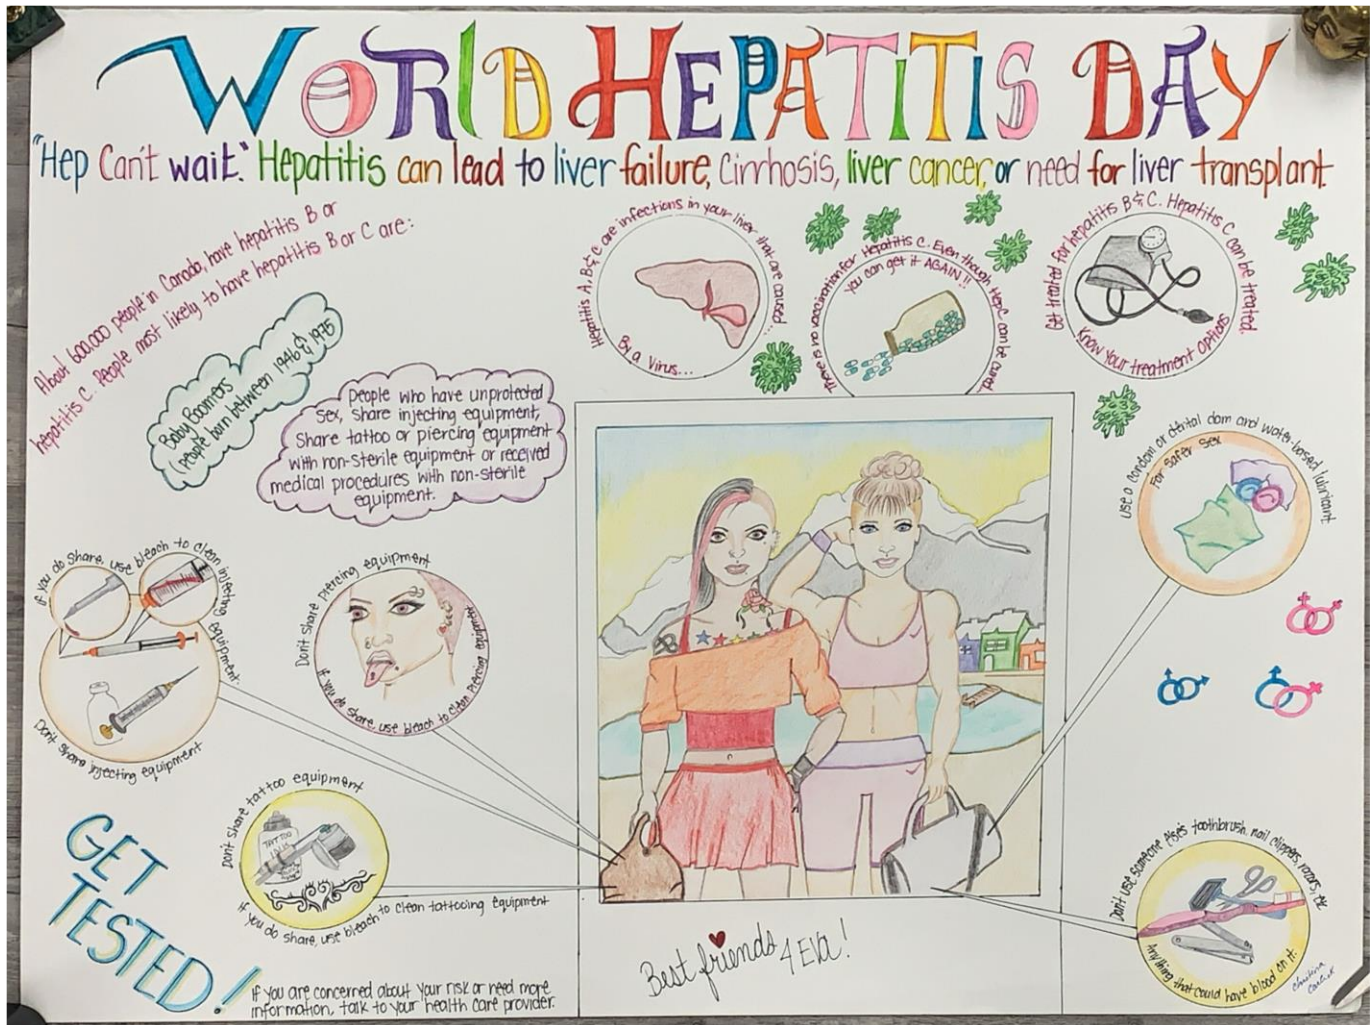 WORLD HEPATITIS DAY
"Hep Can't wait." Hepatitis can lead to liver failure, Cirrhosis, liver cancer, or need for liver transplant.
About 600,000 people in Canada, have hepatitis B or
hepatitis C. People most likely to have hepatitis B or C are:
Baby Boomers
(people born between 1946 & 1975
People who have unprotected
sex, share injecting equipment,
Share tattoo or piercing equipment
with non-sterile equipment or received
medical procedures with non-sterile
equipment.
Hepatitis A, B & C are infections in your liver that are caused...
By a Virus...
There is no vaccination for Hepatitis C. Even though Hep C can be cured.
you can get it AGAIN!!
Get treated for hepatitis B & C. Hepatitis C can be treated.
Know Your treatment options
Use a condom or dental dam and water-based lubricant
For Safer Sex
If you do share, use bleach to clean injecting equipment
Don't share injecting equipment
Don't share piercing equipment
If you do share, use bleach to clean piercing equipment
Don't share tattoo equipment
TATTOO
If you do share, use bleach to clean tattooing equipment
GET
TESTED!
If you are concerned about your risk or need more
information, talk to your health care provider.
Best friends 4 EVA!
Don't use someone else's toothbrush, nail clippers, razors, etc
Anything that could have blood on it.
Christina